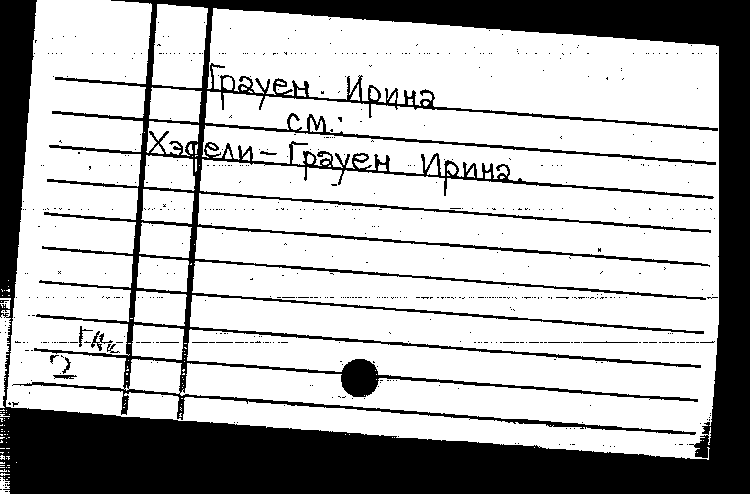 Грауен. Ирина
см.:
Хэфели - Грауен Ирина.
2